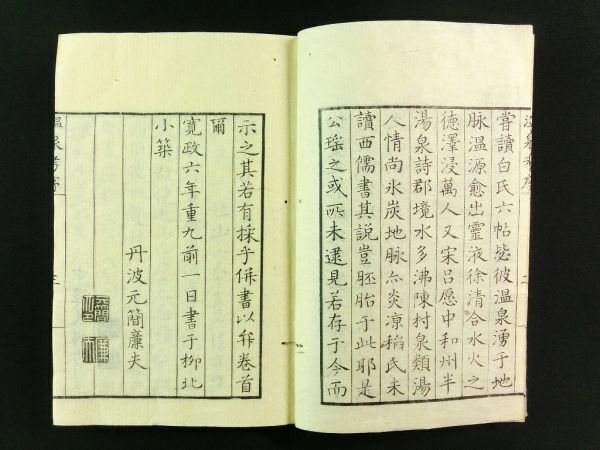 嘗讀白氏六帖毖彼溫泉湧于地
脉温源愈出靈液徐清合水火之
德澤浸萬人又宋呂愿中和州半
湯泉詩郡境水多沸陳村泉類湯
人情尚氷炭地脉亦炎凉稻氏未
讀西儒書其説豈胚胎于此耶是
公瑶之或所未逮見若存于今而
示之其若有採乎併書以弁卷首
爾
寛政六年重九前一日書于柳北
小築
丹波元簡廉夫
溫泉考序